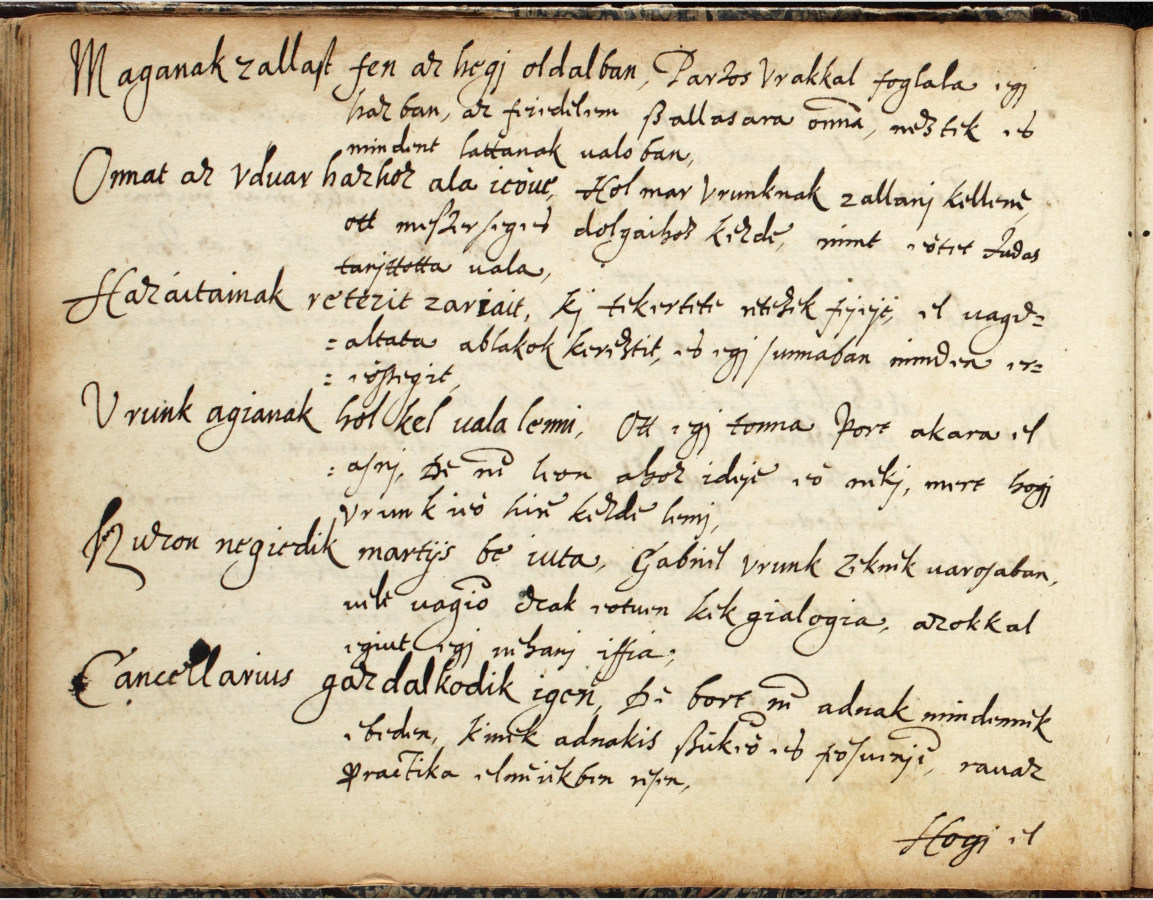 Maganak zallast fen az hegj oldalban, Partos Vrakkal foglala egj
hazban, az feiedelem ßallasara onnā, neztek es
mindent lattanak valoban,
Onnat az Vduar hazhoz ala ieöue, Hol mar Vrunknak zallanj kellene,
ott mesterseges dolgaihoz kezde, mint eötet Judas
tanjttotta vala,
Hazaitainak retezit zariait, kj tekertete retezek fejejt, el vagd=
=altata ablakok kereztit, es egj summaban minden er=
=eösseget,
Vrunk agianak hol kel vala lenni, Ott egj tonna Port akara el
=asnj, De nē leon ahoz ideje eö nekj, mert hogj
Vrunk ieö hire kezde lenj,
Huzon negiedik martÿs be iuta, Gabriel Vrunk Zeknek varosaban,
vele vagiō czak eotuen kek gialogia, azokkal
egiut egj nehanj iffia;
Cancellarius gazdalkodik igen, De bort nē adnak mindennek
ebeden, kinek adnakis ßūkeō es fösuenje, rauaz
practika elmeiekben esen,
Hogj el